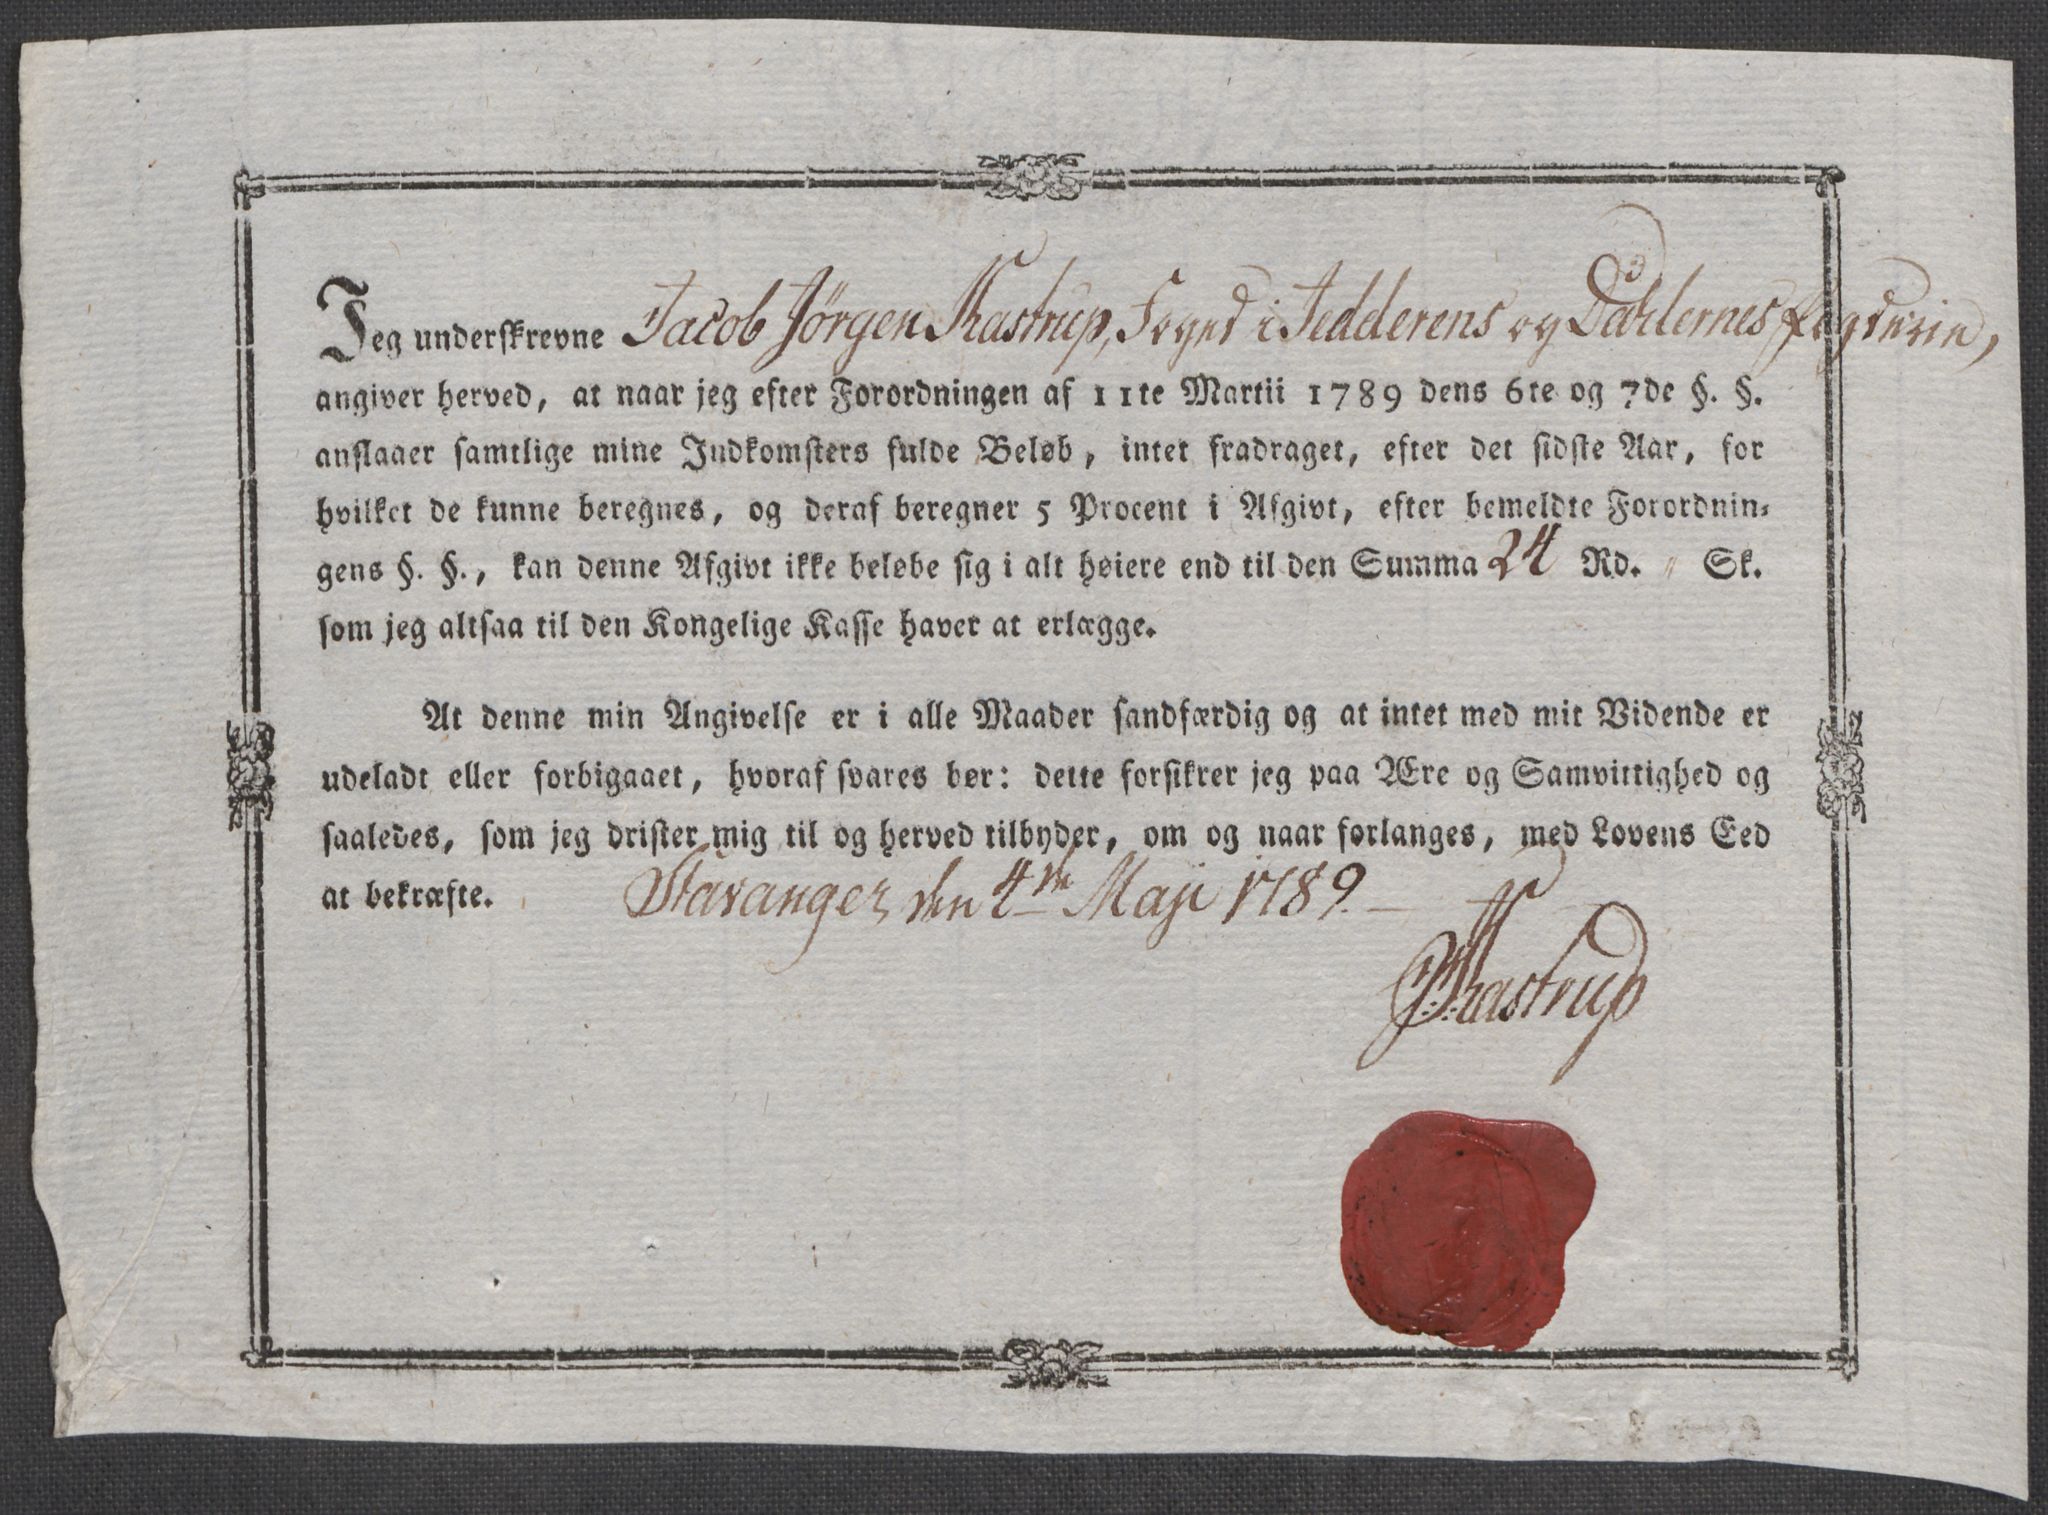 Jeg underskrevne Jacob Jörgen Kastrup, Foged i Jedderens og Dahlernes fogderie,
angiver herved, at naar jeg efter Forordningen af 11te Martii 1789 dens 6te og 7de §. §.
anslaaer samtlige mine Indkomsters fulde Beløb, intet fradraget, efter det sidste Aar, for
hvilket de kunne beregnes, og deraf beregner 5 Procent i Afgivt, efter bemeldte Forordnin=
gens §. §., kan denne Afgivt ikke beløbe sig i alt høiere end til den Summa 24 Rd. " Sk.
som jeg altsaa til den Kongelige Kasse haver at erlægge.
At denne min Angivelse er i alle Maader sandfærdig og at intet med mit Vidende er
udeladt eller forbigaaet, hvoraf svares bør: dette forsikrer jeg paa Ære og Samvittighed og
saaledes, som jeg drister mig til og herved tilbyder, om og naar forlanges, med Lovens Eed
at bekræfte. Stavanger den 4de Maji 1789.
Kastrup